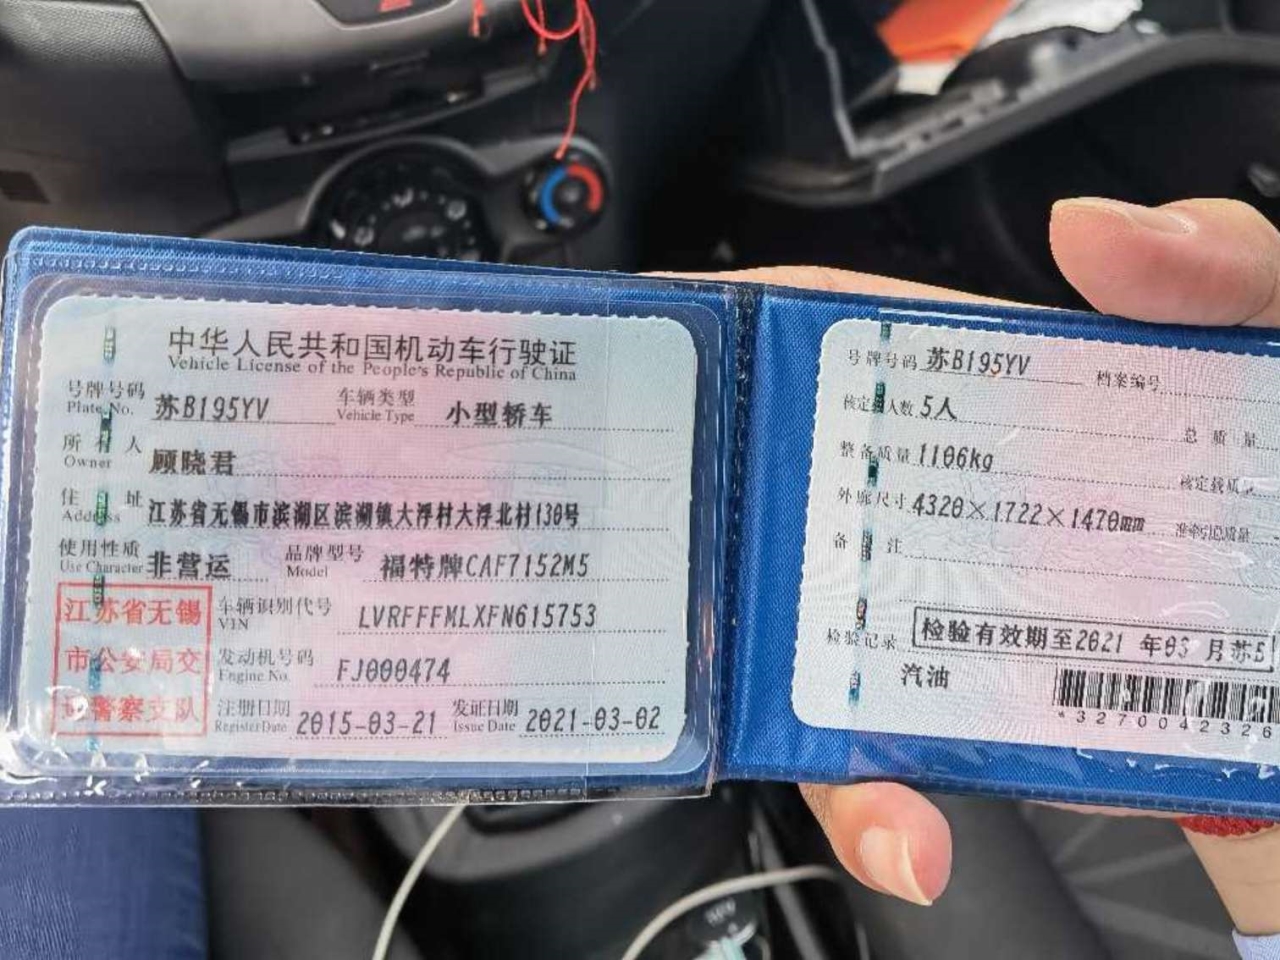 中华人民共和国机动车行驶证
Vehicle License of the People's Republic of China
号牌号码 苏B195YV 车辆类型 小型轿车
Plate No. Vehicle Type
所有人 顾晓君
Owner
住址 江苏省无锡市滨湖区滨湖镇大浮村大浮北村130号
Address
使用性质 非营运 品牌型号 福特牌CAF7152M5
Use Character Model
江苏省无锡
市公安局交
通警察支队
车辆识别代号 LVRFFFMLXFN615753
VIN
发动机号码 FJ000474
Engine No.
注册日期 2015-03-21 发证日期 2021-03-02
Register Date Issue Date
号牌号码 苏B195YV 档案编号
核定载人数 5人 总质量
整备质量 1106kg 核定载质量
外廓尺寸 4320×1722×1470mm 准牵引总质量
备注
检验记录 检验有效期至2021年03月苏B
汽油
*3270042326